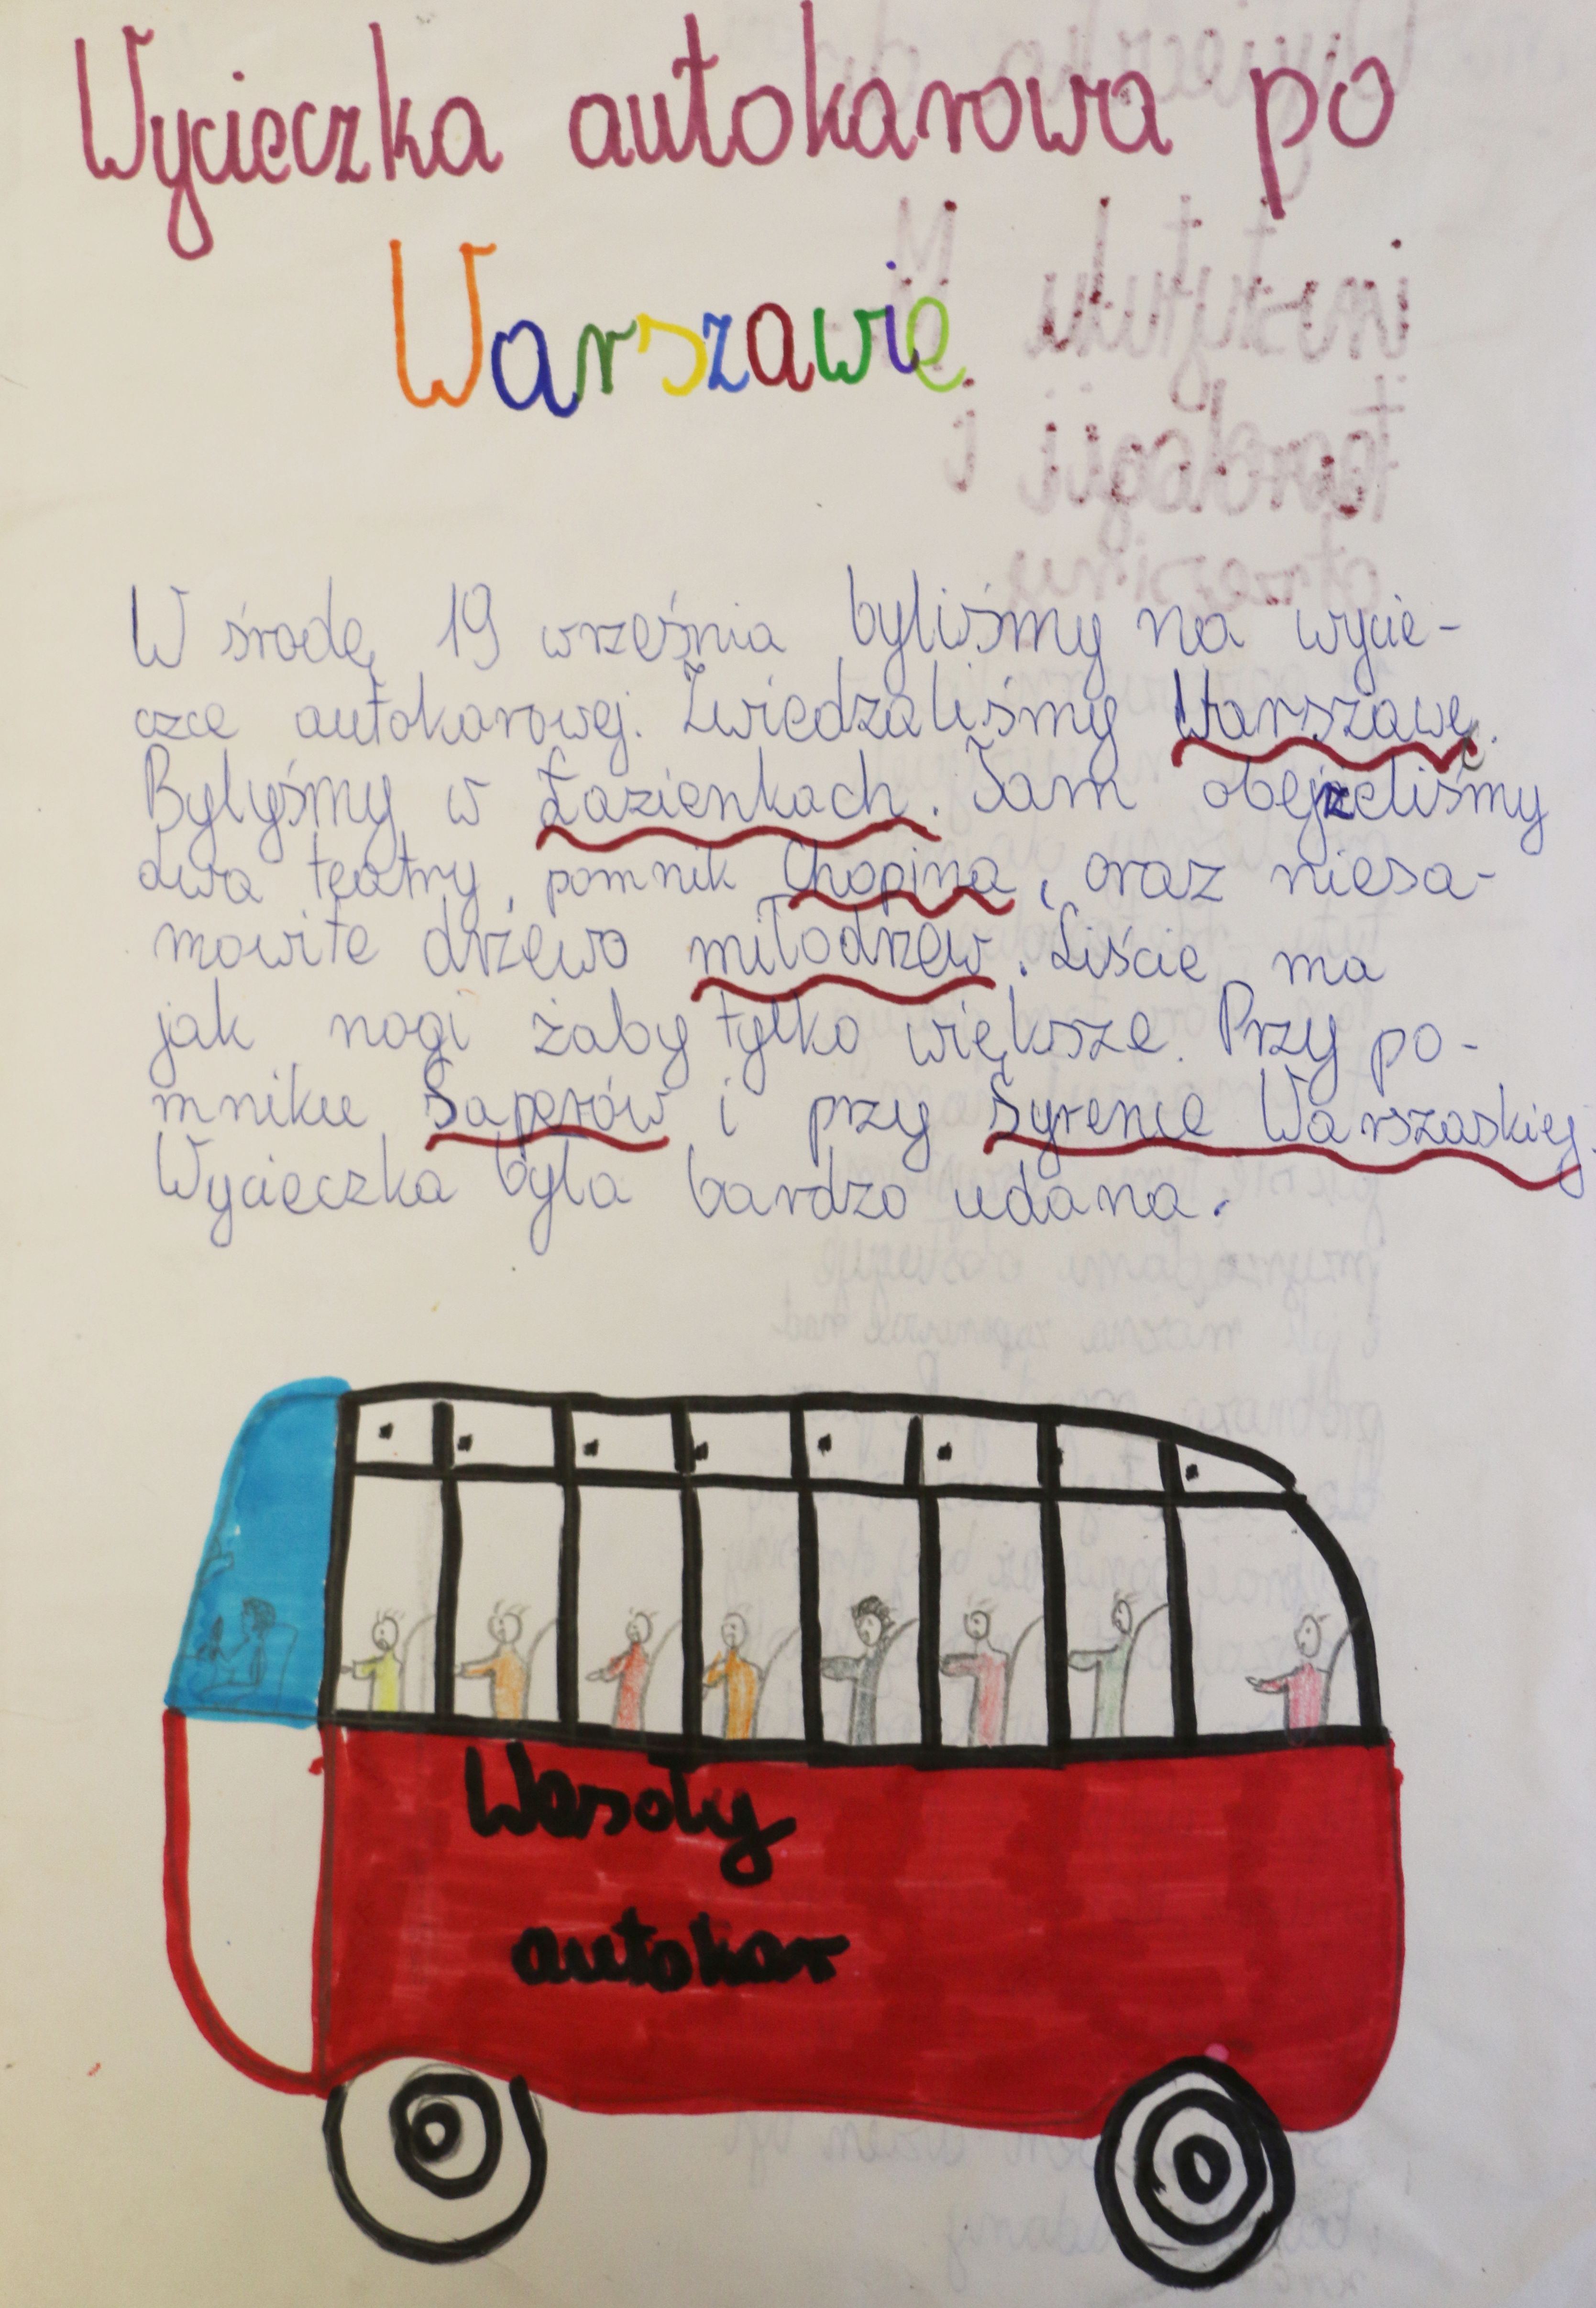 Wycieczka autokarowa po
Warszawie
W środę 19 września byliśmy na wycie-
czce autokarowej. Zwiedzaliśmy Warszawę.
Bylyśmy w Łazienkach. Tam obejrzeliśmy
dwa teatry, pomnik Chopina, oraz niesa-
mowite drzewo miłodrzew. Liście ma
jak nogi żaby tylko większe. Przy po-
mniku Saperów i przy Syrence Warszaskiej.
Wycieczka była bardzo udana.
Wesoły
autokar